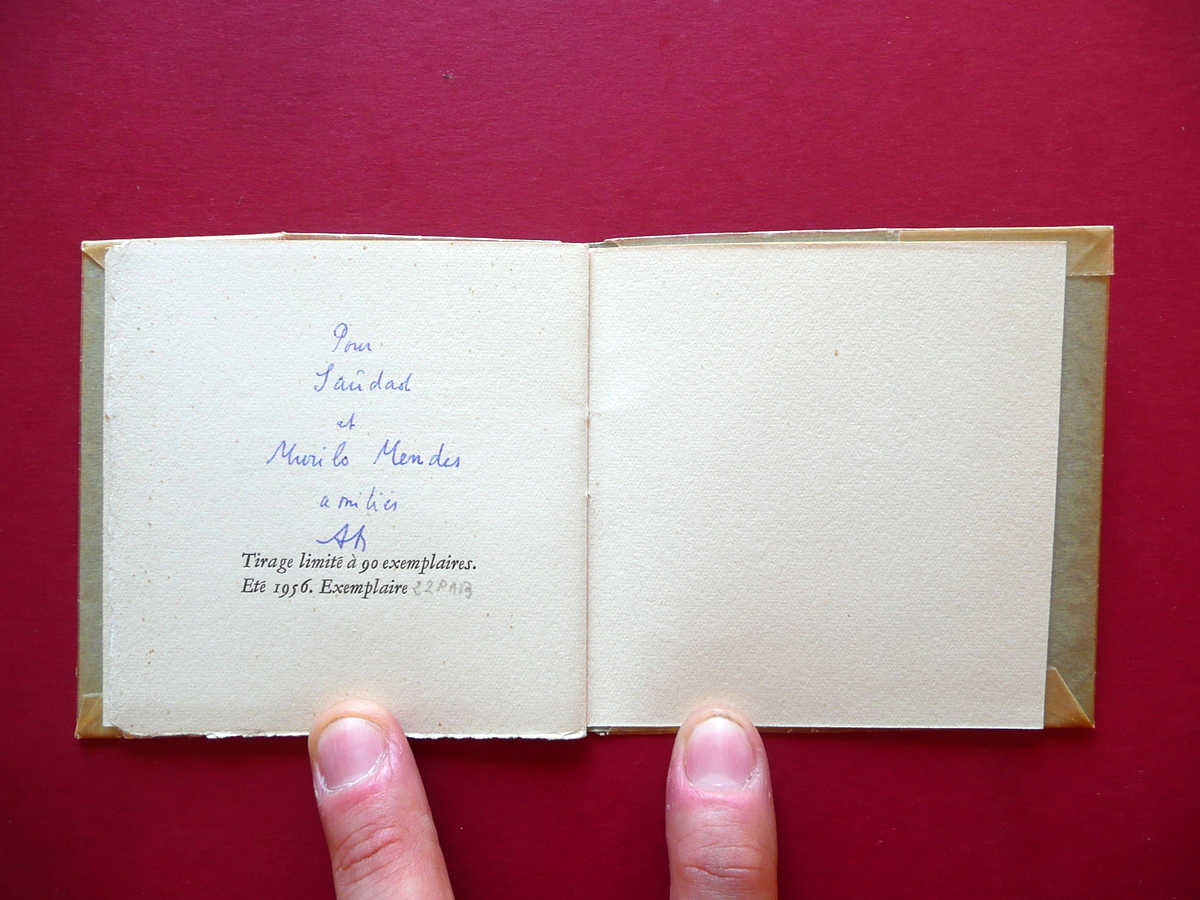 Pour
Saüdad
et
Murilo Mendes
amitiés
Tirage limité à 90 exemplaires.
Eté 1956. Exemplaire